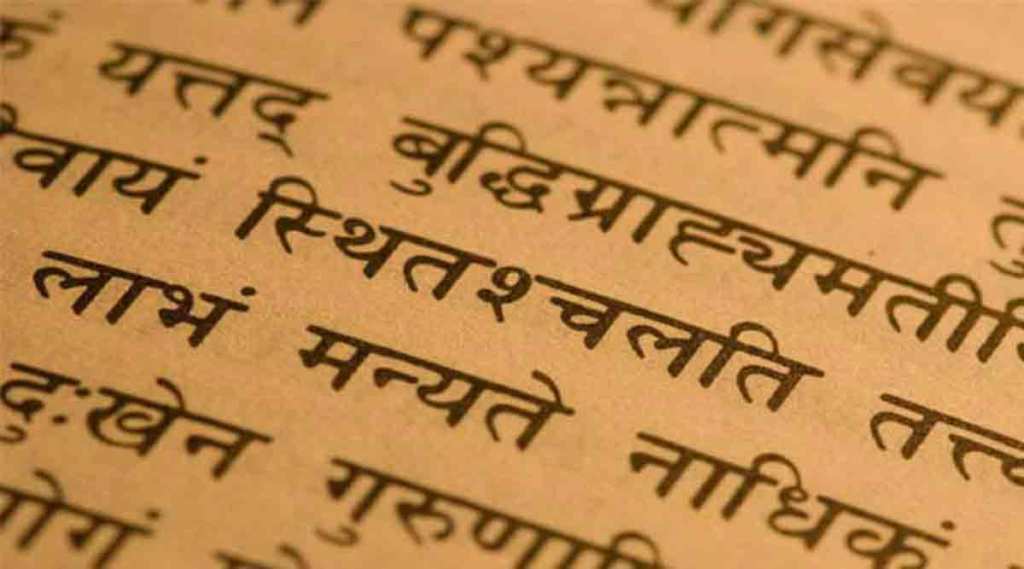 योगसेवया
पश्यन्नात्मनि तु
कं यत्तद् बुद्धिग्राह्यमती
वायं स्थितश्चलति तत्त्व
लाभं मन्यते नाधिकं
दुःखेन गुरुणापि